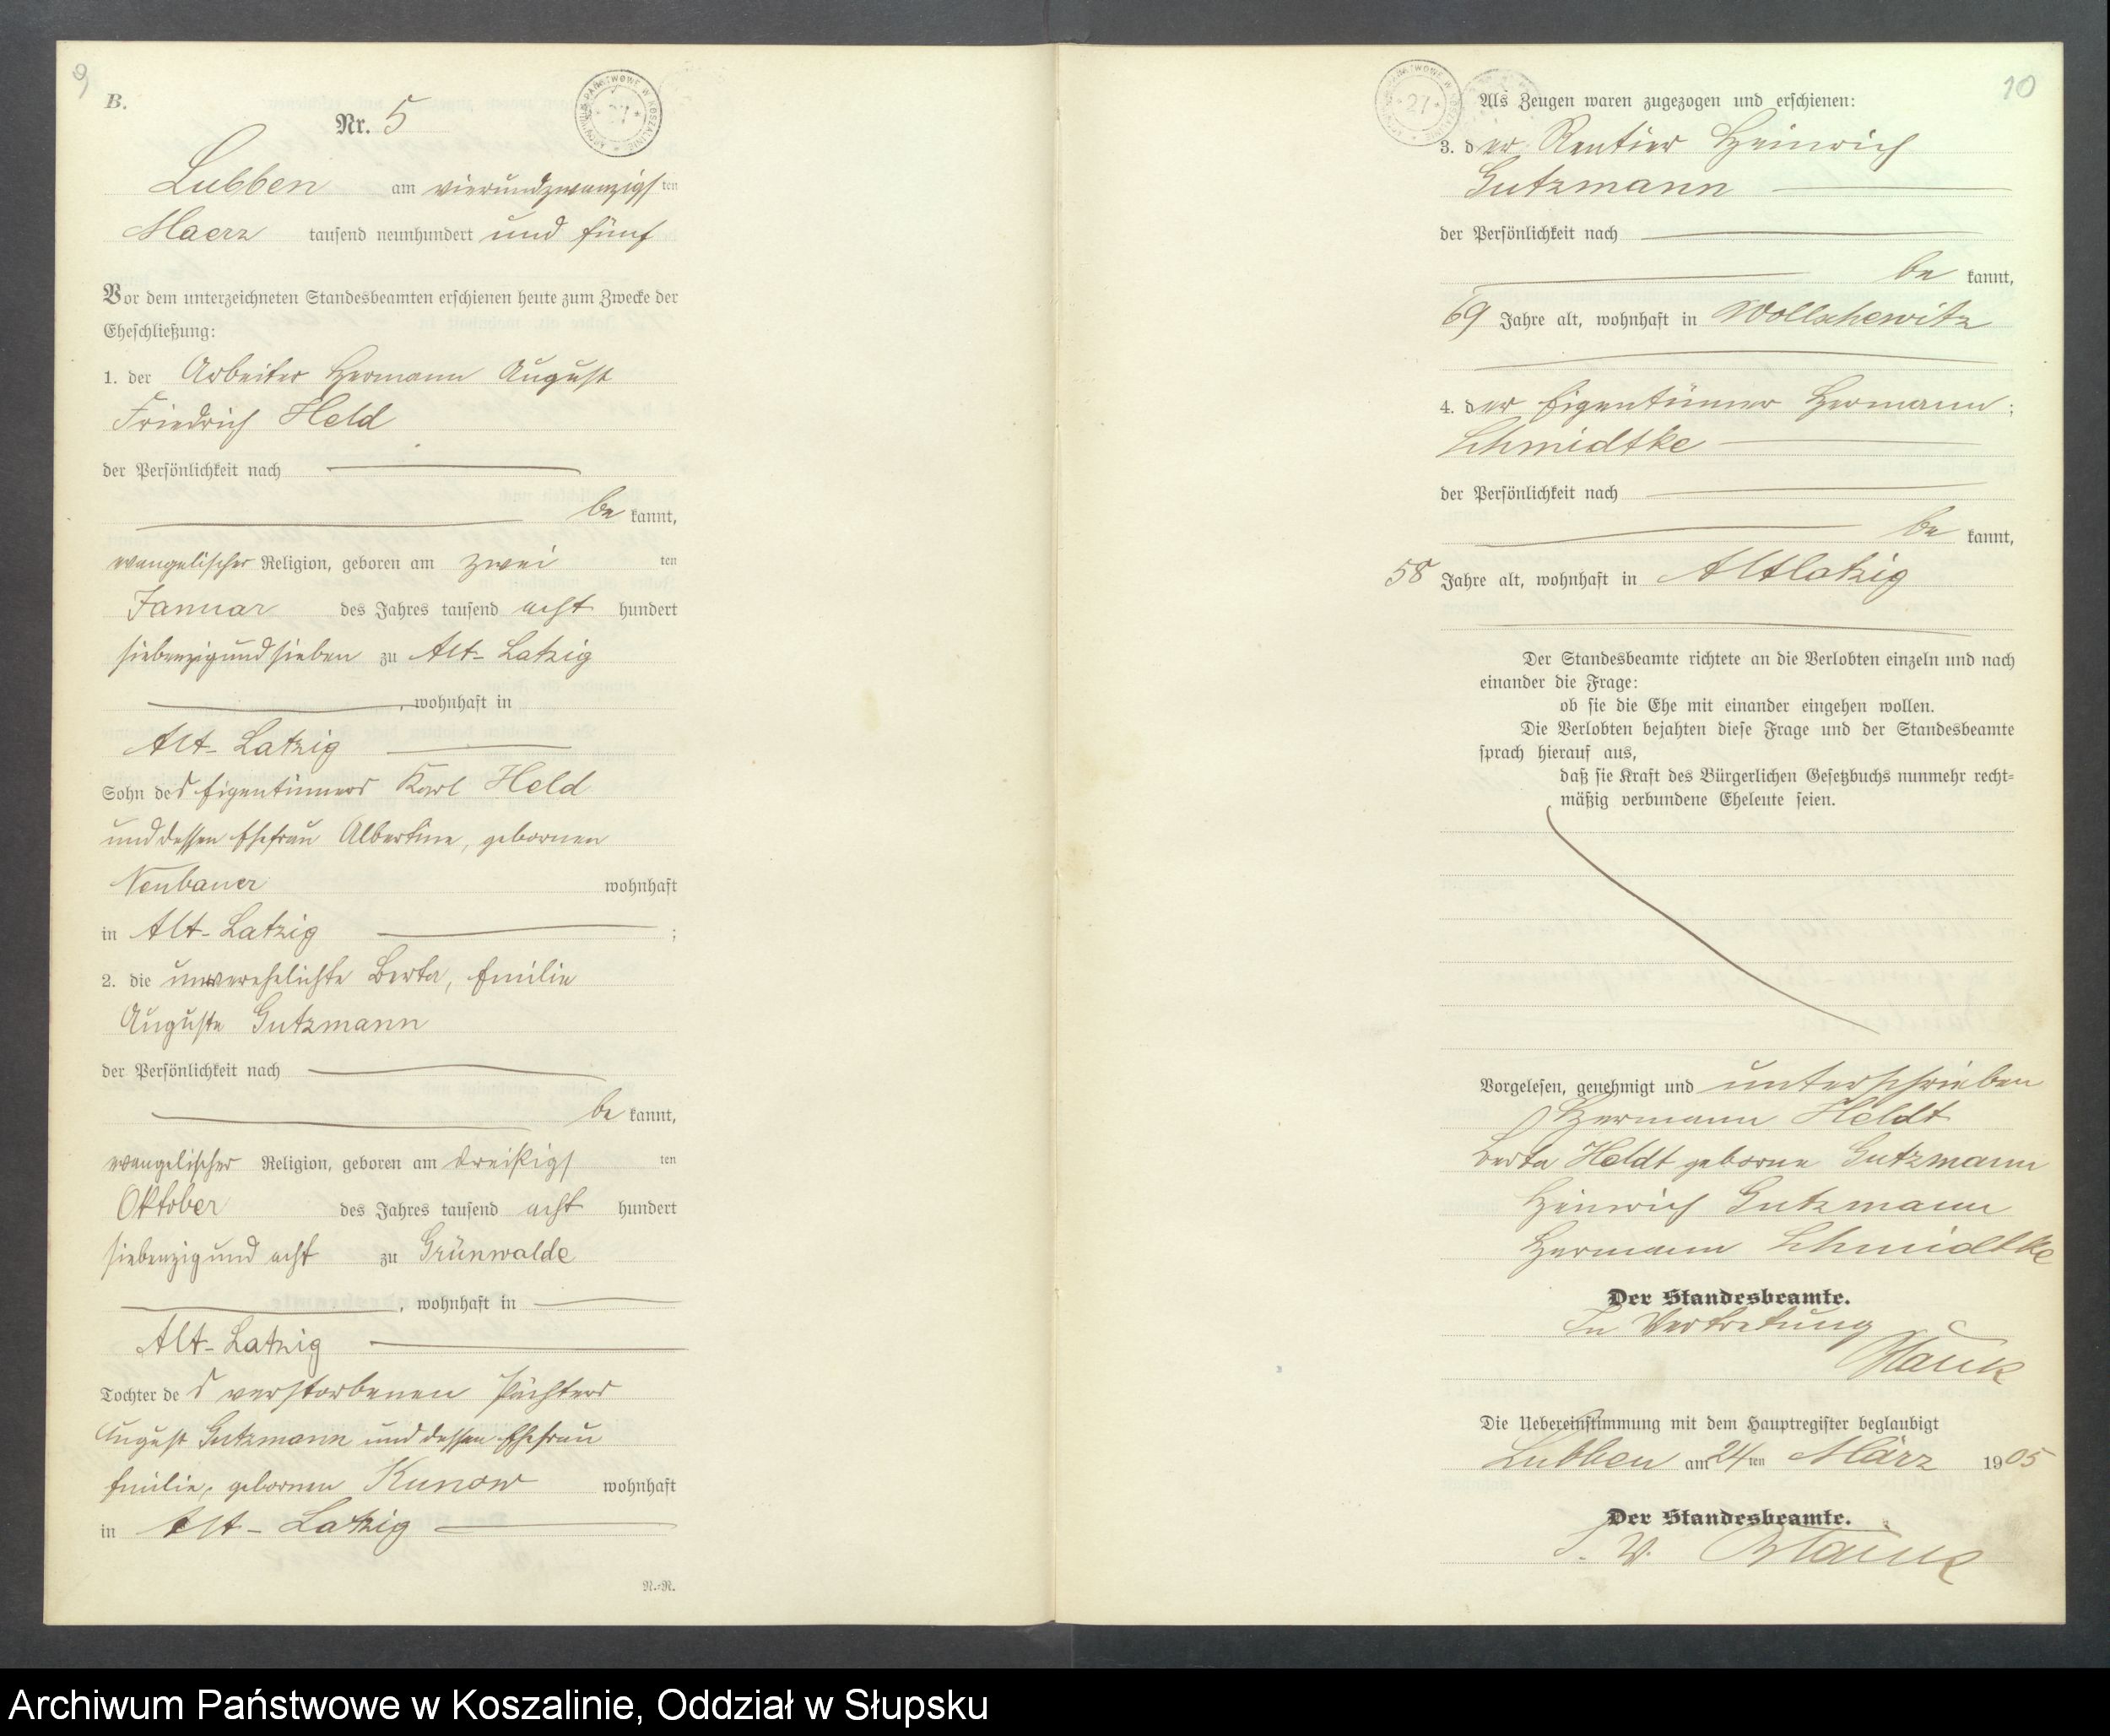 9
B.
Nr. 5
Lubben am vierundzwanzigsten
Maerz tausend neunhundert und fünf
Vor dem unterzeichneten Standesbeamten erschienen heute zum Zwecke der
Eheschließung:
1. der Arbeiter Hermann August
Friedrich Held
der Persönlichkeit nach
be kannt,
evangelischer Religion, geboren am zwei ten
Januar des Jahres tausend acht hundert
siebenzigundsieben zu Alt-Latzig
, wohnhaft in
Alt-Latzig
Sohn des Eigentümers Karl Held
und dessen Ehefrau Albertine, gebornen
Neubauer wohnhaft
in Alt-Latzig ;
2. die unverehelichte Berta, Emilie
Auguste Gutzmann
der Persönlichkeit nach
be kannt,
evangelischer Religion, geboren am dreißigs ten
Oktober des Jahres tausend acht hundert
siebenzigund acht zu Grünwalde
, wohnhaft in
Alt-Latzig
Tochter des verstorbenen Pächters
August Gutzmann und dessen Ehefrau
Emilie, gebornen Kunow wohnhaft
in Alt-Latzig
N.-R.
10
Als Zeugen waren zugezogen und erschienen:
3. der Rentier Heinrich
Gutzmann
der Persönlichkeit nach
be kannt,
69 Jahre alt, wohnhaft in Wollschewitz
4. der Eigentümer Hermann ;
Schmidtke
der Persönlichkeit nach
be kannt,
58 Jahre alt, wohnhaft in Altlatzig
Der Standesbeamte richtete an die Verlobten einzeln und nach
einander die Frage:
ob sie die Ehe mit einander eingehen wollen.
Die Verlobten bejahten diese Frage und der Standesbeamte
sprach hierauf aus,
daß sie kraft des Bürgerlichen Gesetzbuchs nunmehr recht=
mäßig verbundene Eheleute seien.
Vorgelesen, genehmigt und unterschrieben
Hermann Heldt
Berta Heldt geborne Gutzmann
Heinrich Gutzmann
Hermann Schmidtke
Der Standesbeamte.
In Vertretung
Die Uebereinstimmung mit dem Hauptregister beglaubigt
Lubben am 24ten März 1905
Der Standesbeamte.
I. V.
Archiwum Państwowe w Koszalinie, Oddział w Słupsku